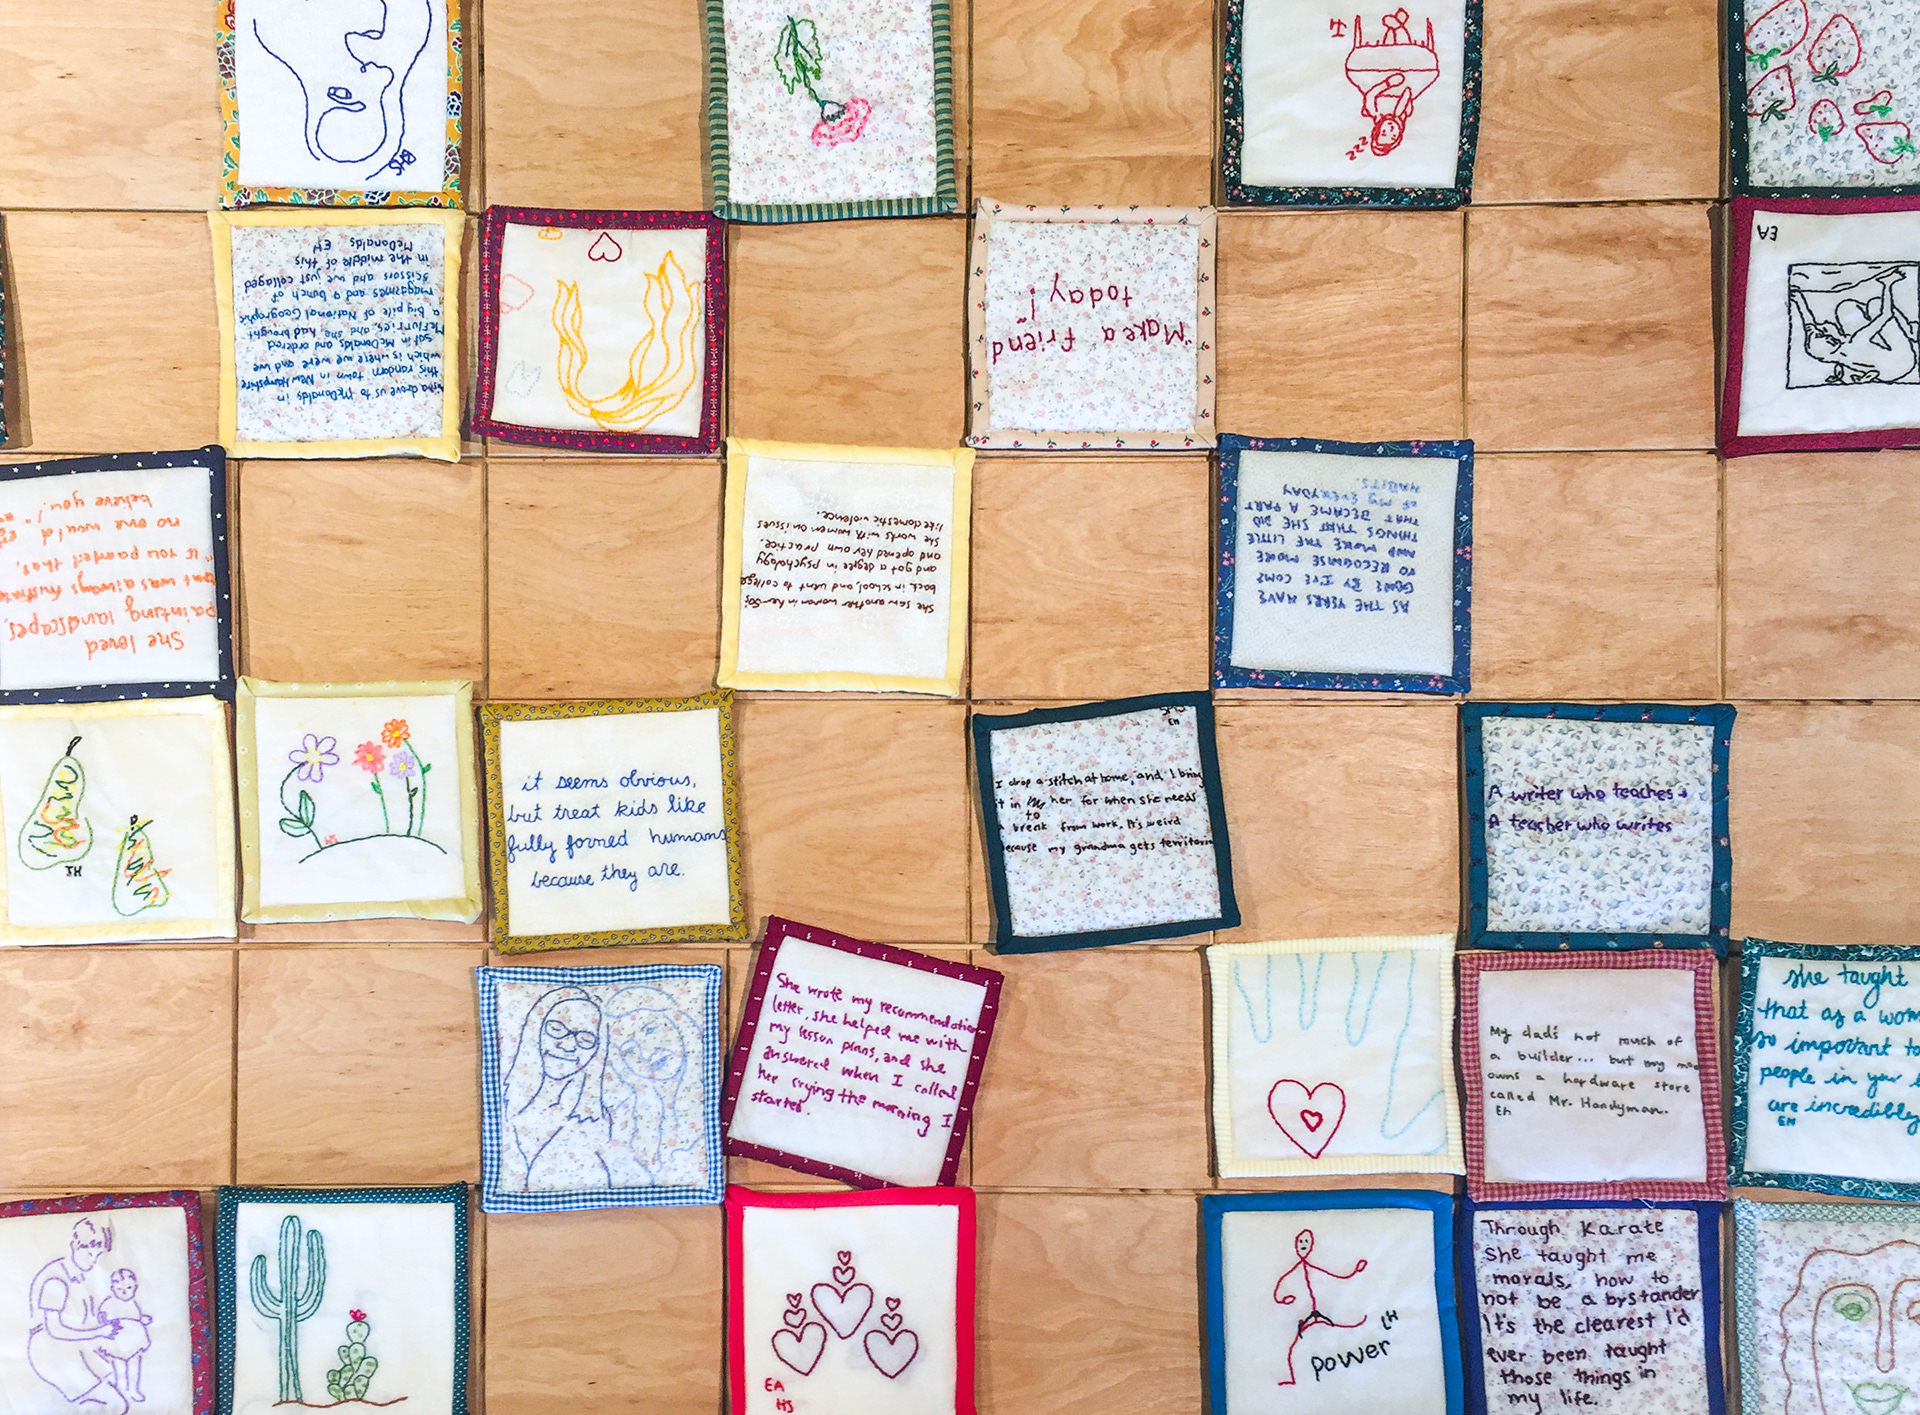 BHS
H
zzz
EA
drove us to McDonalds in
this random town in New Hampshire
which is where we were and we
sat in McDonalds and ordered
McFlurries, and she had brought
a big pile of National Geographic
magazines and a bunch of
scissors and we just collaged
in the middle of this
McDonalds EH
"Make a friend
today!
She loved
painting landscapes,
that was always
"if you painted that,
no one would
believe you!"
She saw another woman in her 50s
back in school, and went to college
and got a degree in psychology
and opened her own practice.
She works with women on issues
like domestic violence.
AS THE YEARS HAVE
GONE BY I'VE COME
TO RECOGNISE MORE
AND MORE THE LITTLE
THINGS THAT SHE DID
THAT BECAME A PART
OF MY EVERYDAY
HABITS.
HS
it seems obvious,
but treat kids like
fully formed humans
because they are.
EH
I drop a stitch at home, and I bring
it in to her for when she needs
a break from work. It's weird
because my grandma gets territorial
A writer who teaches →
A teacher who writes
She wrote my recommendation
letter, she helped me with
my lesson plans, and she
answered when I called
her crying the morning I
started.
My dad's not much of
a builder... but my
owns a hardware store
called Mr. Handyman.
EH
she taught
that as a
so important to
people in your
are incredibly
EH
EA
HS
LH
power
Through Karate
She taught me
morals, how to
not be a bystander
It's the clearest I'd
ever been taught
those things in
my life.